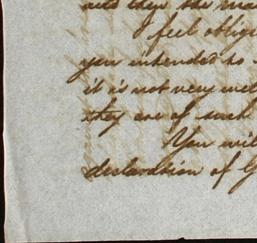 and then the
I feel oblig
you intended to
it is not very wel
they are of such
You wil
declaration of G